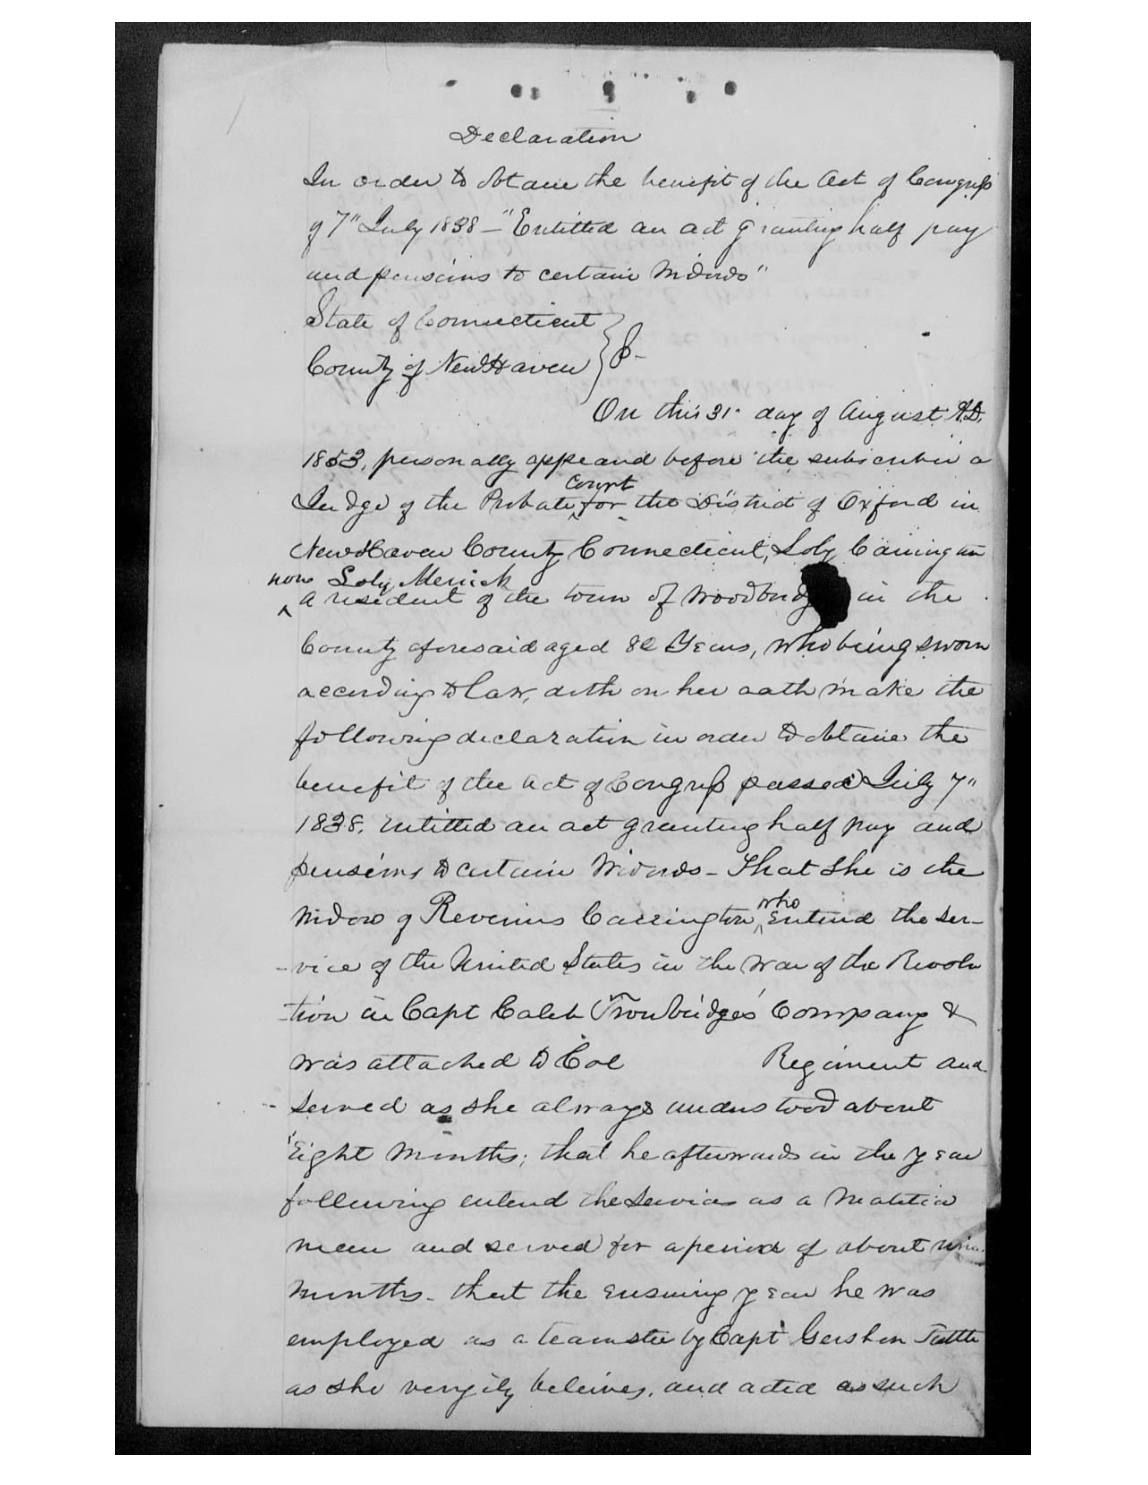 Declaration
In order to obtain the benefit of the Act of Congress
of 7" July 1838 - "Entitled an act granting half pay
and pensions to certain Widows"
State of Connecticut
County of New Haven
On this 31. day of August A.D.
1853, personally appeared before the subscriber a
Judge of the Probate Court for the District of Oxford in
New Haven County Connecticut, Loly Carrington
now Loly Merrick
a resident of the town of Woodbridge in the
County aforesaid aged Years, who being sworn
according to law, doth on her oath make the
following declaration in order to obtain the
benefit of the act of Congress passed July 7"
1838. entitled an act granting half pay and
pensions to certain Widows - That she is the
widow of Carrington, who entered the ser-
-vice of the United States in the war of the Revolu
-tion in Capt Caleb Trowbridge's Company &
was attached to Col Regiment and
served as she always understood about
Eight Months; that he afterwards in the year
following entered the service as a
man and served for a period of about
months - that the ensuing year he was
employed as a teamster by Capt Gershom Tuttle
as she verily believes, and acted as such